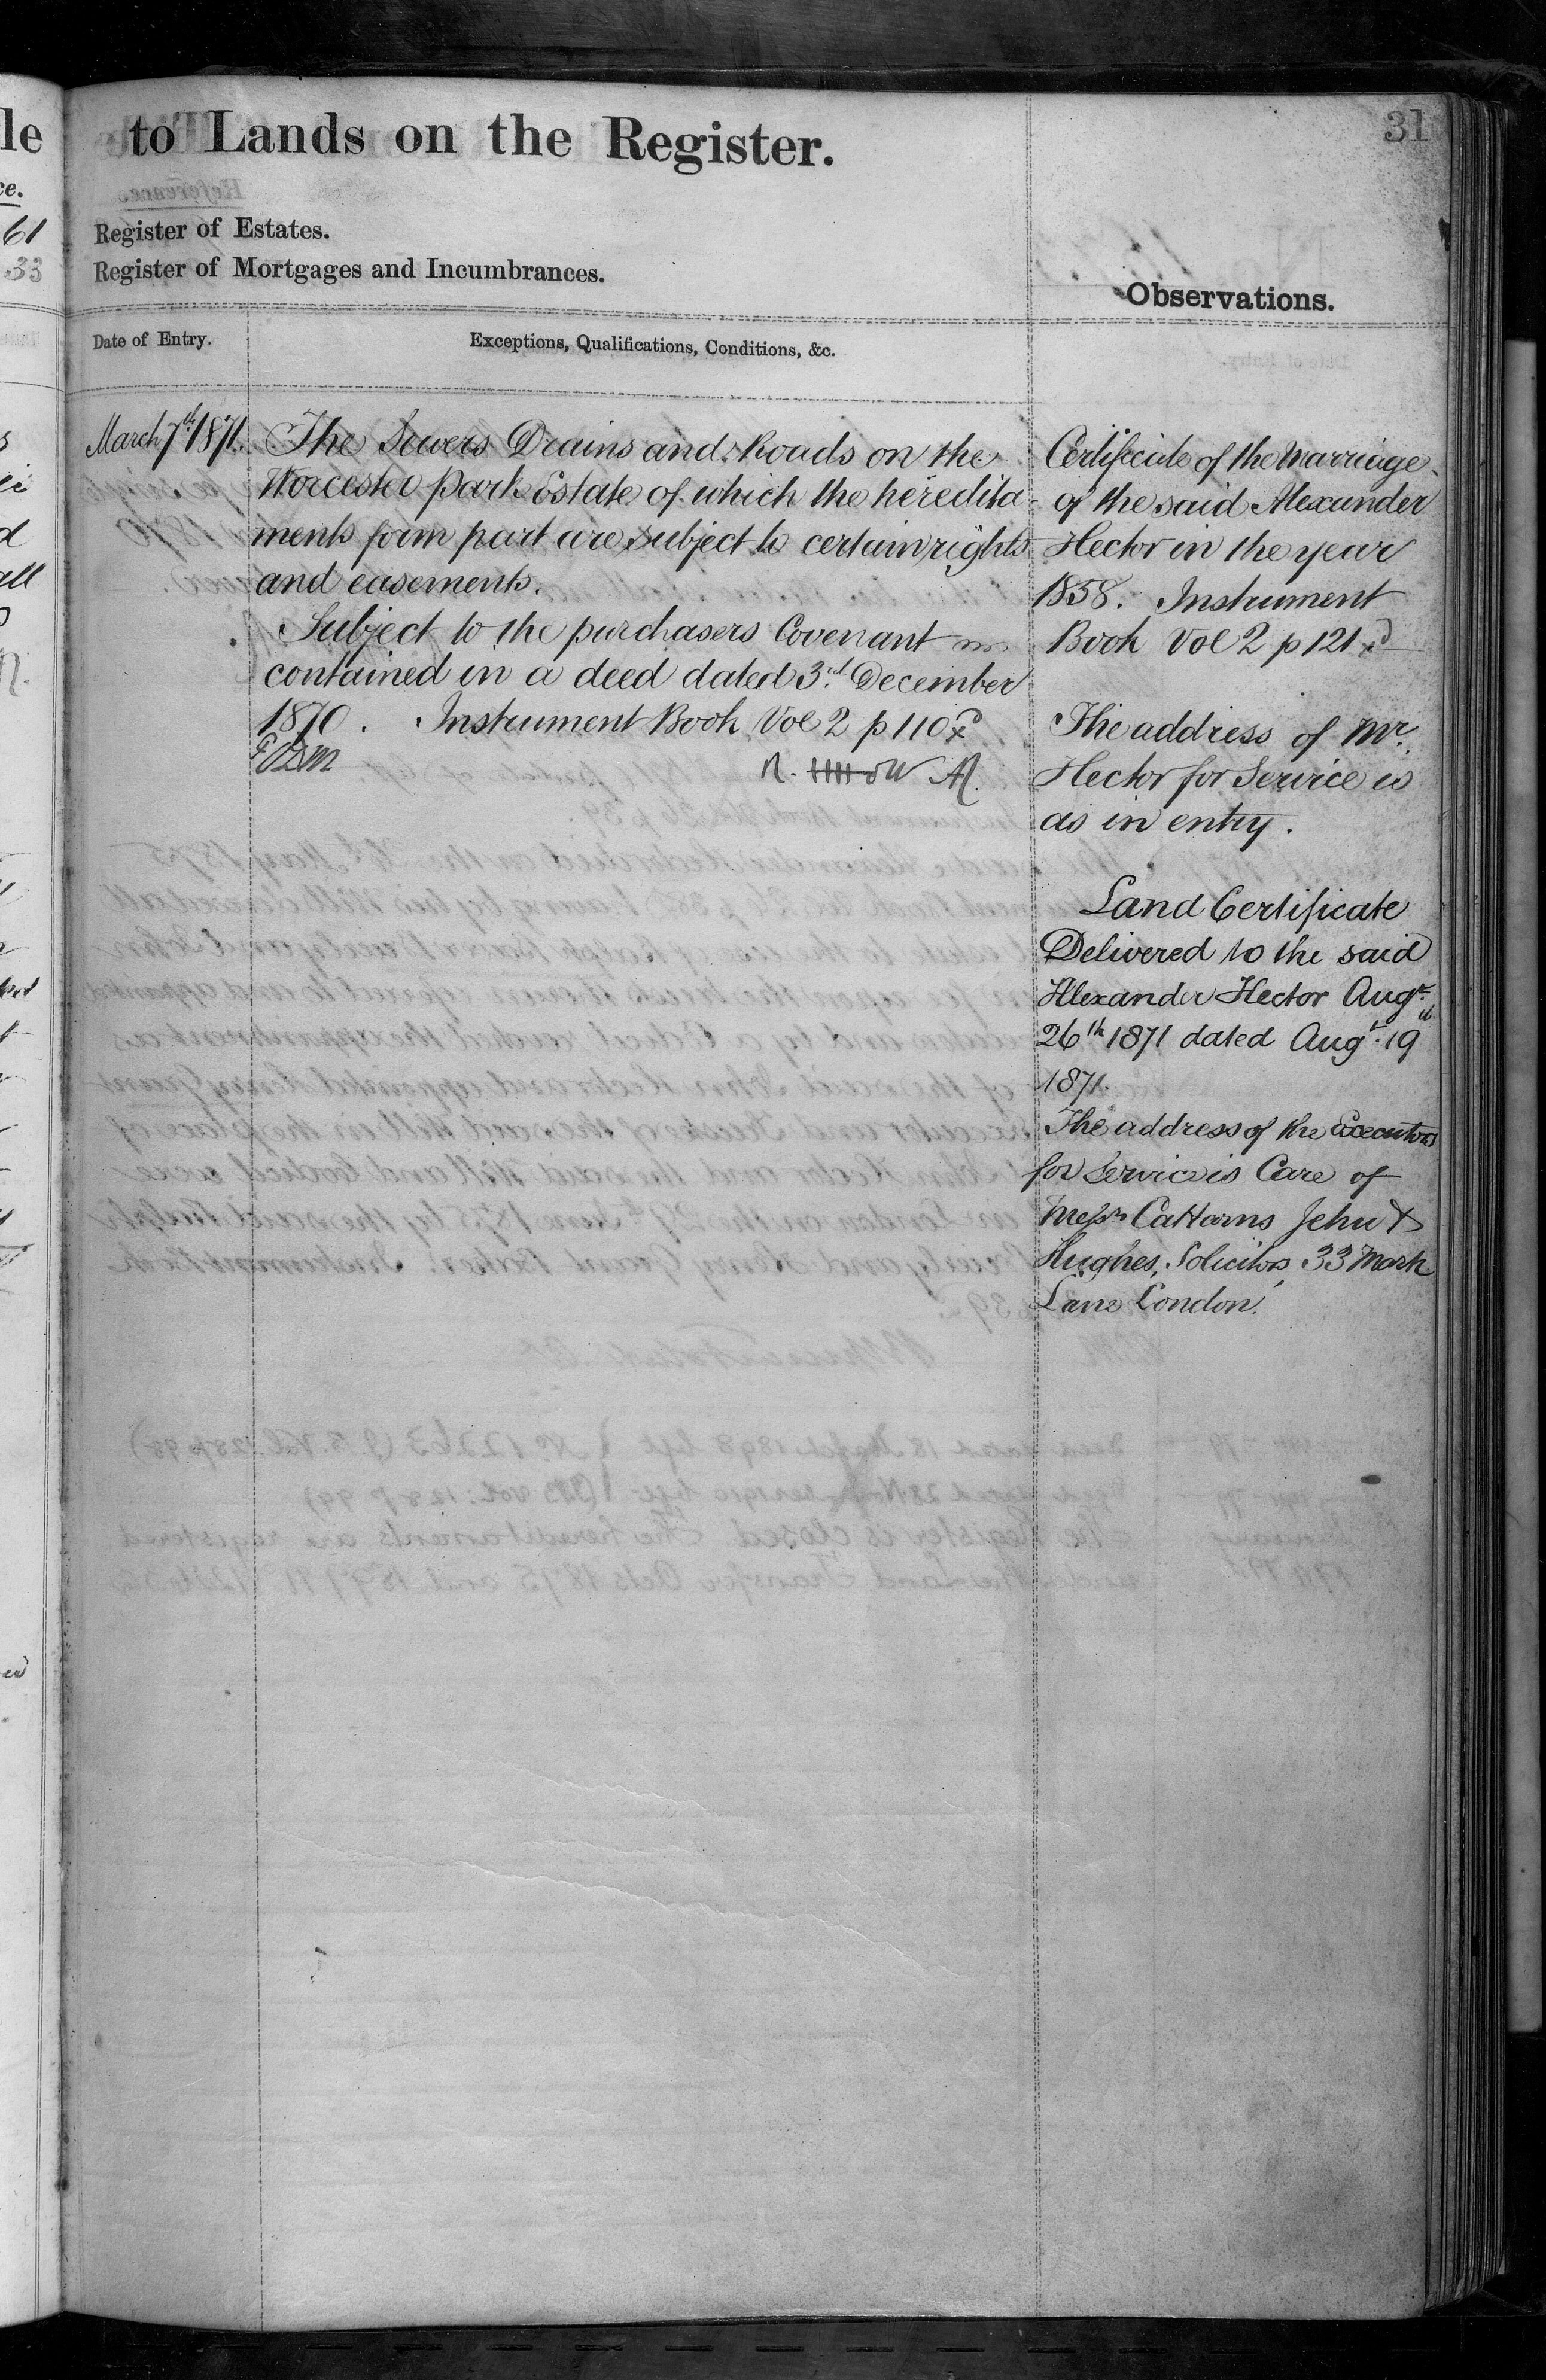 31
to Lands on the Register.
Register of Estates.
Register of Mortgages and Incumbrances.
Observations.
Date of Entry.
Exceptions, Qualifications, Conditions, &c.
March 7th 1871.
The Sewers Drains and Roads on the
Worcester Park Estate of which the heredita-
ments form part are subject to certain rights
and easements.
Subject to the purchasers Covenant
contained in a deed dated 3rd December
1870. Instrument Book Vol 2 p 110
Certificate of the Marriage
of the said Alexander
Hector in the year
1858. Instrument
Book Vol 2 p 121
The address of Mr.
Hector for Service is
as in entry.
Land Certificate
Delivered to the said
Alexander Hector Augt.
26th 1871 dated Augt. 19th
1871.
The address of the Executors
for Service is Care of
Messrs Cattarns Jehu &
Hughes, Solicitors, 33 Mark
Lane London.